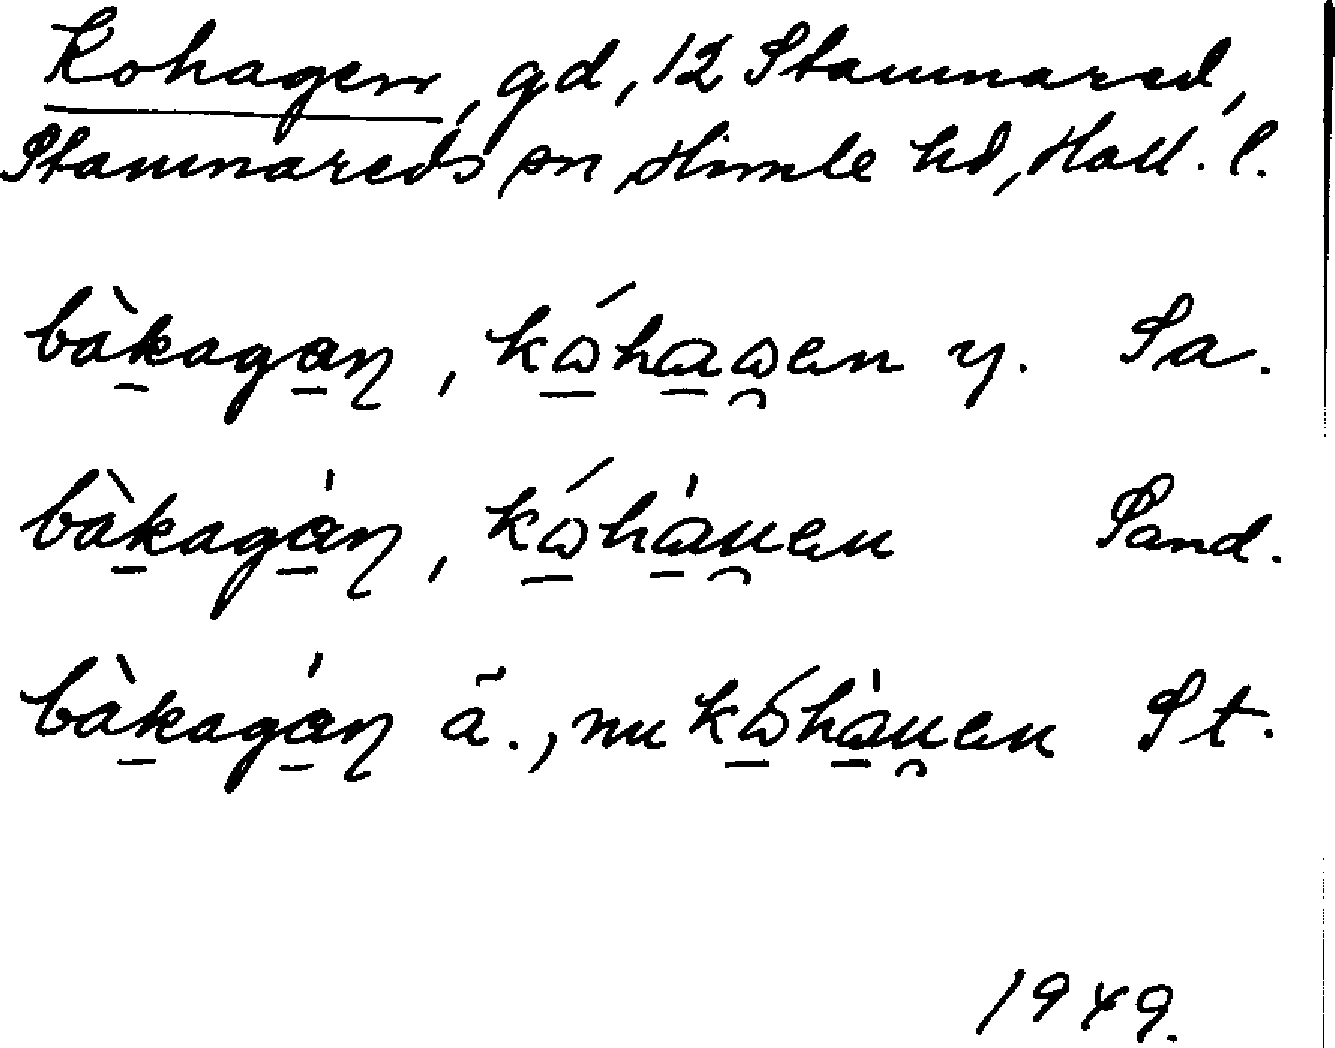 Kohagen, gd, 12 Stamnared,
Stamnareds sn, Himle hd, Hall. l.
bàkagaɳ, kɷ́haɷen y. Sa.
bàkagàɳ, kɷ́hàuen Sand.
bàkagàɳ ä., nu kɷ́hàuen St.
1949.